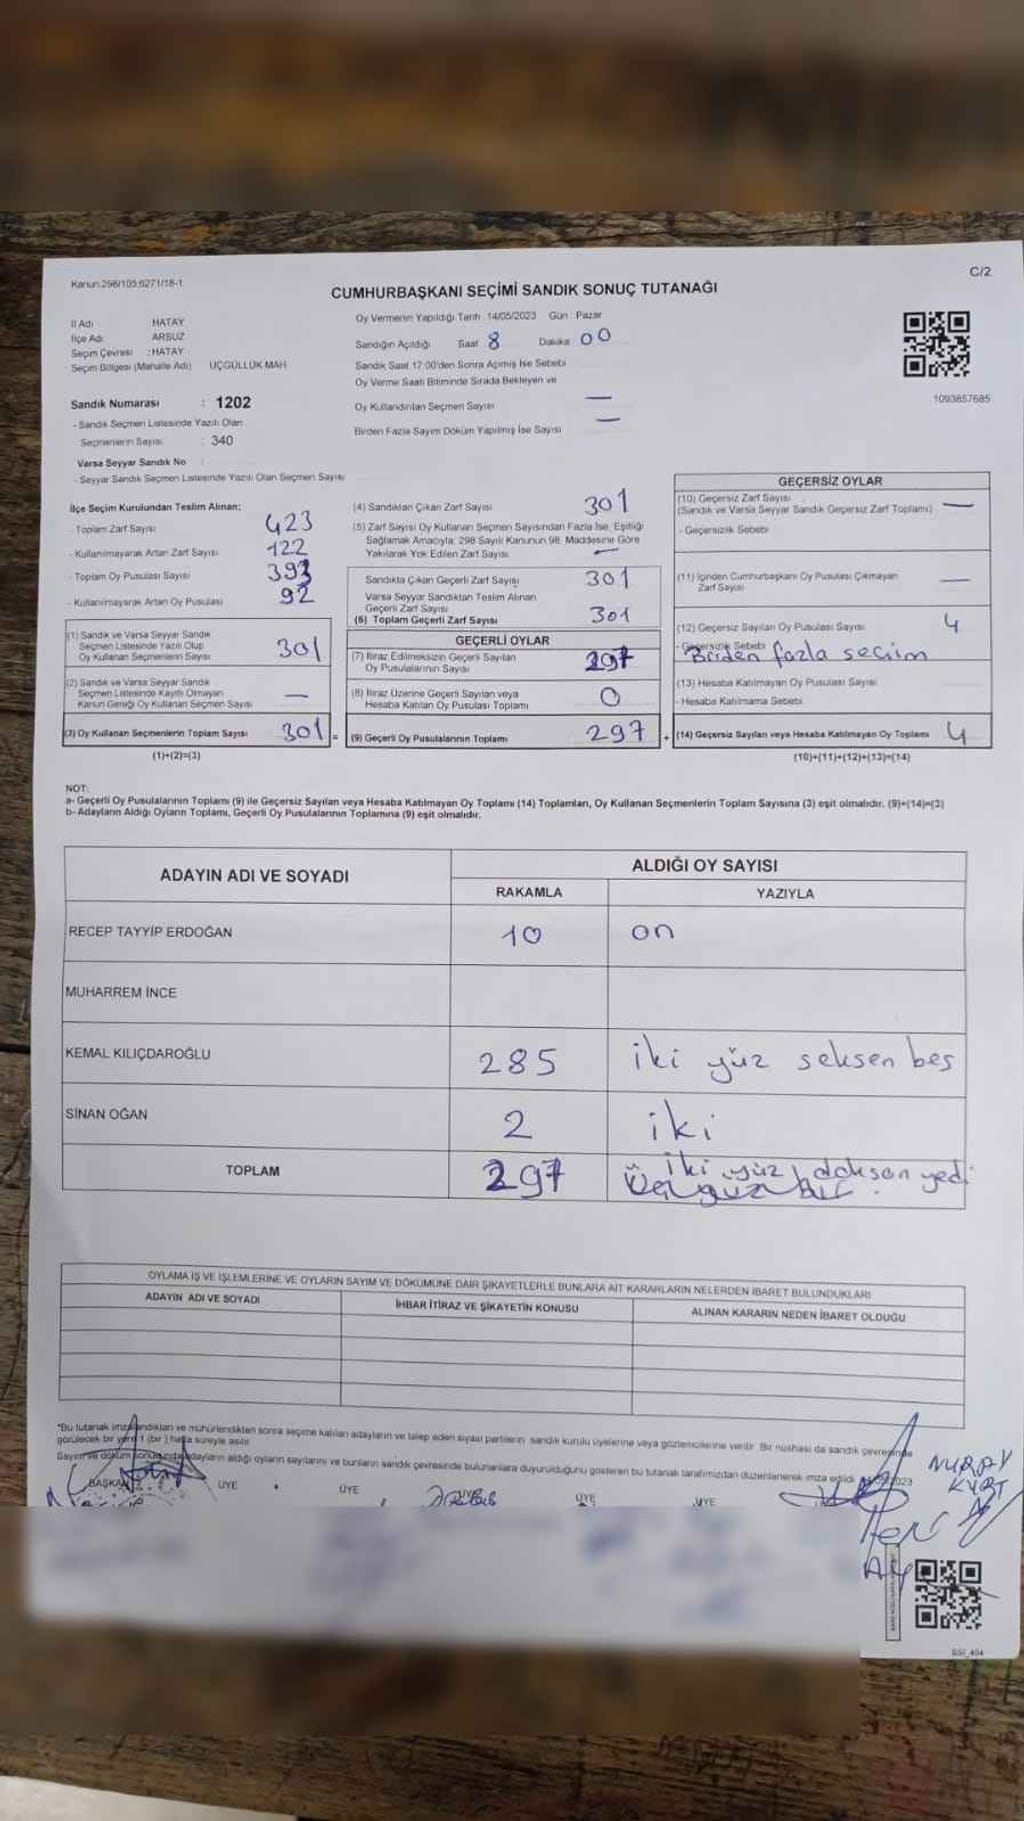 Kanun:298/105;6271/18-1
C/2
CUMHURBAŞKANI SEÇİMİ SANDIK SONUÇ TUTANAĞI
İl Adı HATAY
İlçe Adı ARSUZ
Seçim Çevresi :HATAY
Seçim Bölgesi (Mahalle Adı) ÜÇGÜLLÜK MAH
Sandık Numarası : 1202
- Sandık Seçmen Listesinde Yazılı Olan
Seçmenlerin Sayısı : 340
Varsa Seyyar Sandık No :
- Seyyar Sandık Seçmen Listesinde Yazılı Olan Seçmen Sayısı
Oy Vermenin Yapıldığı Tarih : 14/05/2023 Gün : Pazar
Sandığın Açıldığı Saat 8 Dakika 00
Sandık Saat 17:00'den Sonra Açılmış İse Sebebi
Oy Verme Saati Bitiminde Sırada Bekleyen ve
Oy Kullandırılan Seçmen Sayısı —
Birden Fazla Sayım Döküm Yapılmış İse Sayısı —
1093857685
İlçe Seçim Kurulundan Teslim Alınan:
- Toplam Zarf Sayısı 423
- Kullanılmayarak Artan Zarf Sayısı 122
- Toplam Oy Pusulası Sayısı 393
- Kullanılmayarak Artan Oy Pusulası 92
(1) Sandık ve Varsa Seyyar Sandık
Seçmen Listesinde Yazılı Olup
Oy Kullanan Seçmenlerin Sayısı 301
(2) Sandık ve Varsa Seyyar Sandık
Seçmen Listesinde Kayıtlı Olmayan
Kanun Gereği Oy Kullanan Seçmen Sayısı —
(3) Oy Kullanan Seçmenlerin Toplam Sayısı 301 =
(1)+(2)=(3)
(4) Sandıktan Çıkan Zarf Sayısı 301
(5) Zarf Sayısı Oy Kullanan Seçmen Sayısından Fazla İse, Eşitliği
Sağlamak Amacıyla; 298 Sayılı Kanunun 98. Maddesine Göre
Yakılarak Yok Edilen Zarf Sayısı —
Sandıkta Çıkan Geçerli Zarf Sayısı 301
Varsa Seyyar Sandıktan Teslim Alınan
Geçerli Zarf Sayısı
(6) Toplam Geçerli Zarf Sayısı 301
GEÇERLİ OYLAR
(7) İtiraz Edilmeksizin Geçerli Sayılan
Oy Pusulalarının Sayısı 297
(8) İtiraz Üzerine Geçerli Sayılan veya
Hesaba Katılan Oy Pusulası Toplamı 0
(9) Geçerli Oy Pusulalarının Toplamı 297 +
GEÇERSİZ OYLAR
(10) Geçersiz Zarf Sayısı
(Sandık ve Varsa Seyyar Sandık Geçersiz Zarf Toplamı) —
- Geçersizlik Sebebi
(11) İçinden Cumhurbaşkanı Oy Pusulası Çıkmayan
Zarf Sayısı —
(12) Geçersiz Sayılan Oy Pusulası Sayısı 4
- Geçersizlik Sebebi Birden fazla seçim
(13) Hesaba Katılmayan Oy Pusulası Sayısı
- Hesaba Katılmama Sebebi
(14) Geçersiz Sayılan veya Hesaba Katılmayan Oy Toplamı 4
(10)+(11)+(12)+(13)=(14)
NOT:
a- Geçerli Oy Pusulalarının Toplamı (9) ile Geçersiz Sayılan veya Hesaba Katılmayan Oy Toplamı (14) Toplamları, Oy Kullanan Seçmenlerin Toplam Sayısına (3) eşit olmalıdır. (9)+(14)=(3)
b- Adayların Aldığı Oyların Toplamı, Geçerli Oy Pusulalarının Toplamına (9) eşit olmalıdır.
ADAYIN ADI VE SOYADI
ALDIĞI OY SAYISI
RAKAMLA YAZIYLA
RECEP TAYYİP ERDOĞAN 10 on
MUHARREM İNCE
KEMAL KILIÇDAROĞLU 285 iki yüz seksen beş
SİNAN OĞAN 2 iki
TOPLAM 297 iki yüz doksan yedi
OYLAMA İŞ VE İŞLEMLERİNE VE OYLARIN SAYIM VE DÖKÜMÜNE DAİR ŞİKAYETLERLE BUNLARA AİT KARARLARIN NELERDEN İBARET BULUNDUKLARI
ADAYIN ADI VE SOYADI İHBAR İTİRAZ VE ŞİKAYETİN KONUSU ALINAN KARARIN NEDEN İBARET OLDUĞU
*Bu tutanak imzalandıktan ve mühürlendikten sonra seçime katılan adayların ve talep eden siyasi partilerin sandık kurulu üyelerine veya gözlemcilerine verilir. Bir nüshası da sandık çevresinde
görülecek bir yere 1 (bir) hafta süreyle asılır.
Sayım ve döküm sonucunda adayların aldığı oyların sayılarını ve bunların sandık çevresinde bulunanlara duyurulduğunu gösteren bu tutanak tarafımızdan düzenlenerek imza edildi.
BAŞKAN ÜYE ÜYE ÜYE ÜYE ÜYE
NURAY
KURT
SSI_404